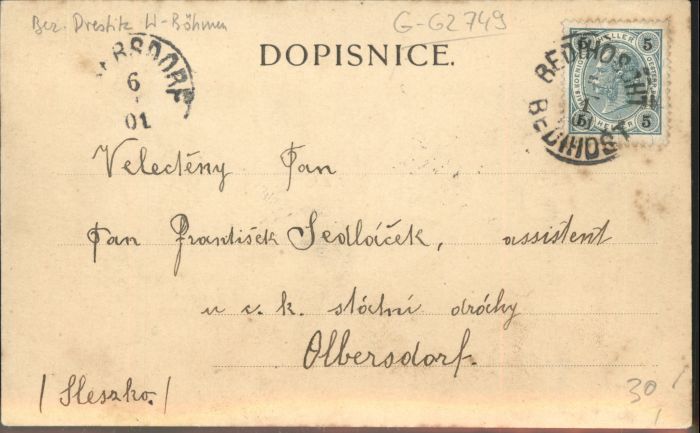 Bez. Prestitz W-Böhmen
G-G2749
DOPISNICE.
6
01
BEDIHOSCHT
BEDIHOŠT
5 5
5 HELLER 5
Velectěný Pan
Pan František Sedláček, assistent
u c. k. státní dráhy
Olbersdorf.
/Slezsko./
30